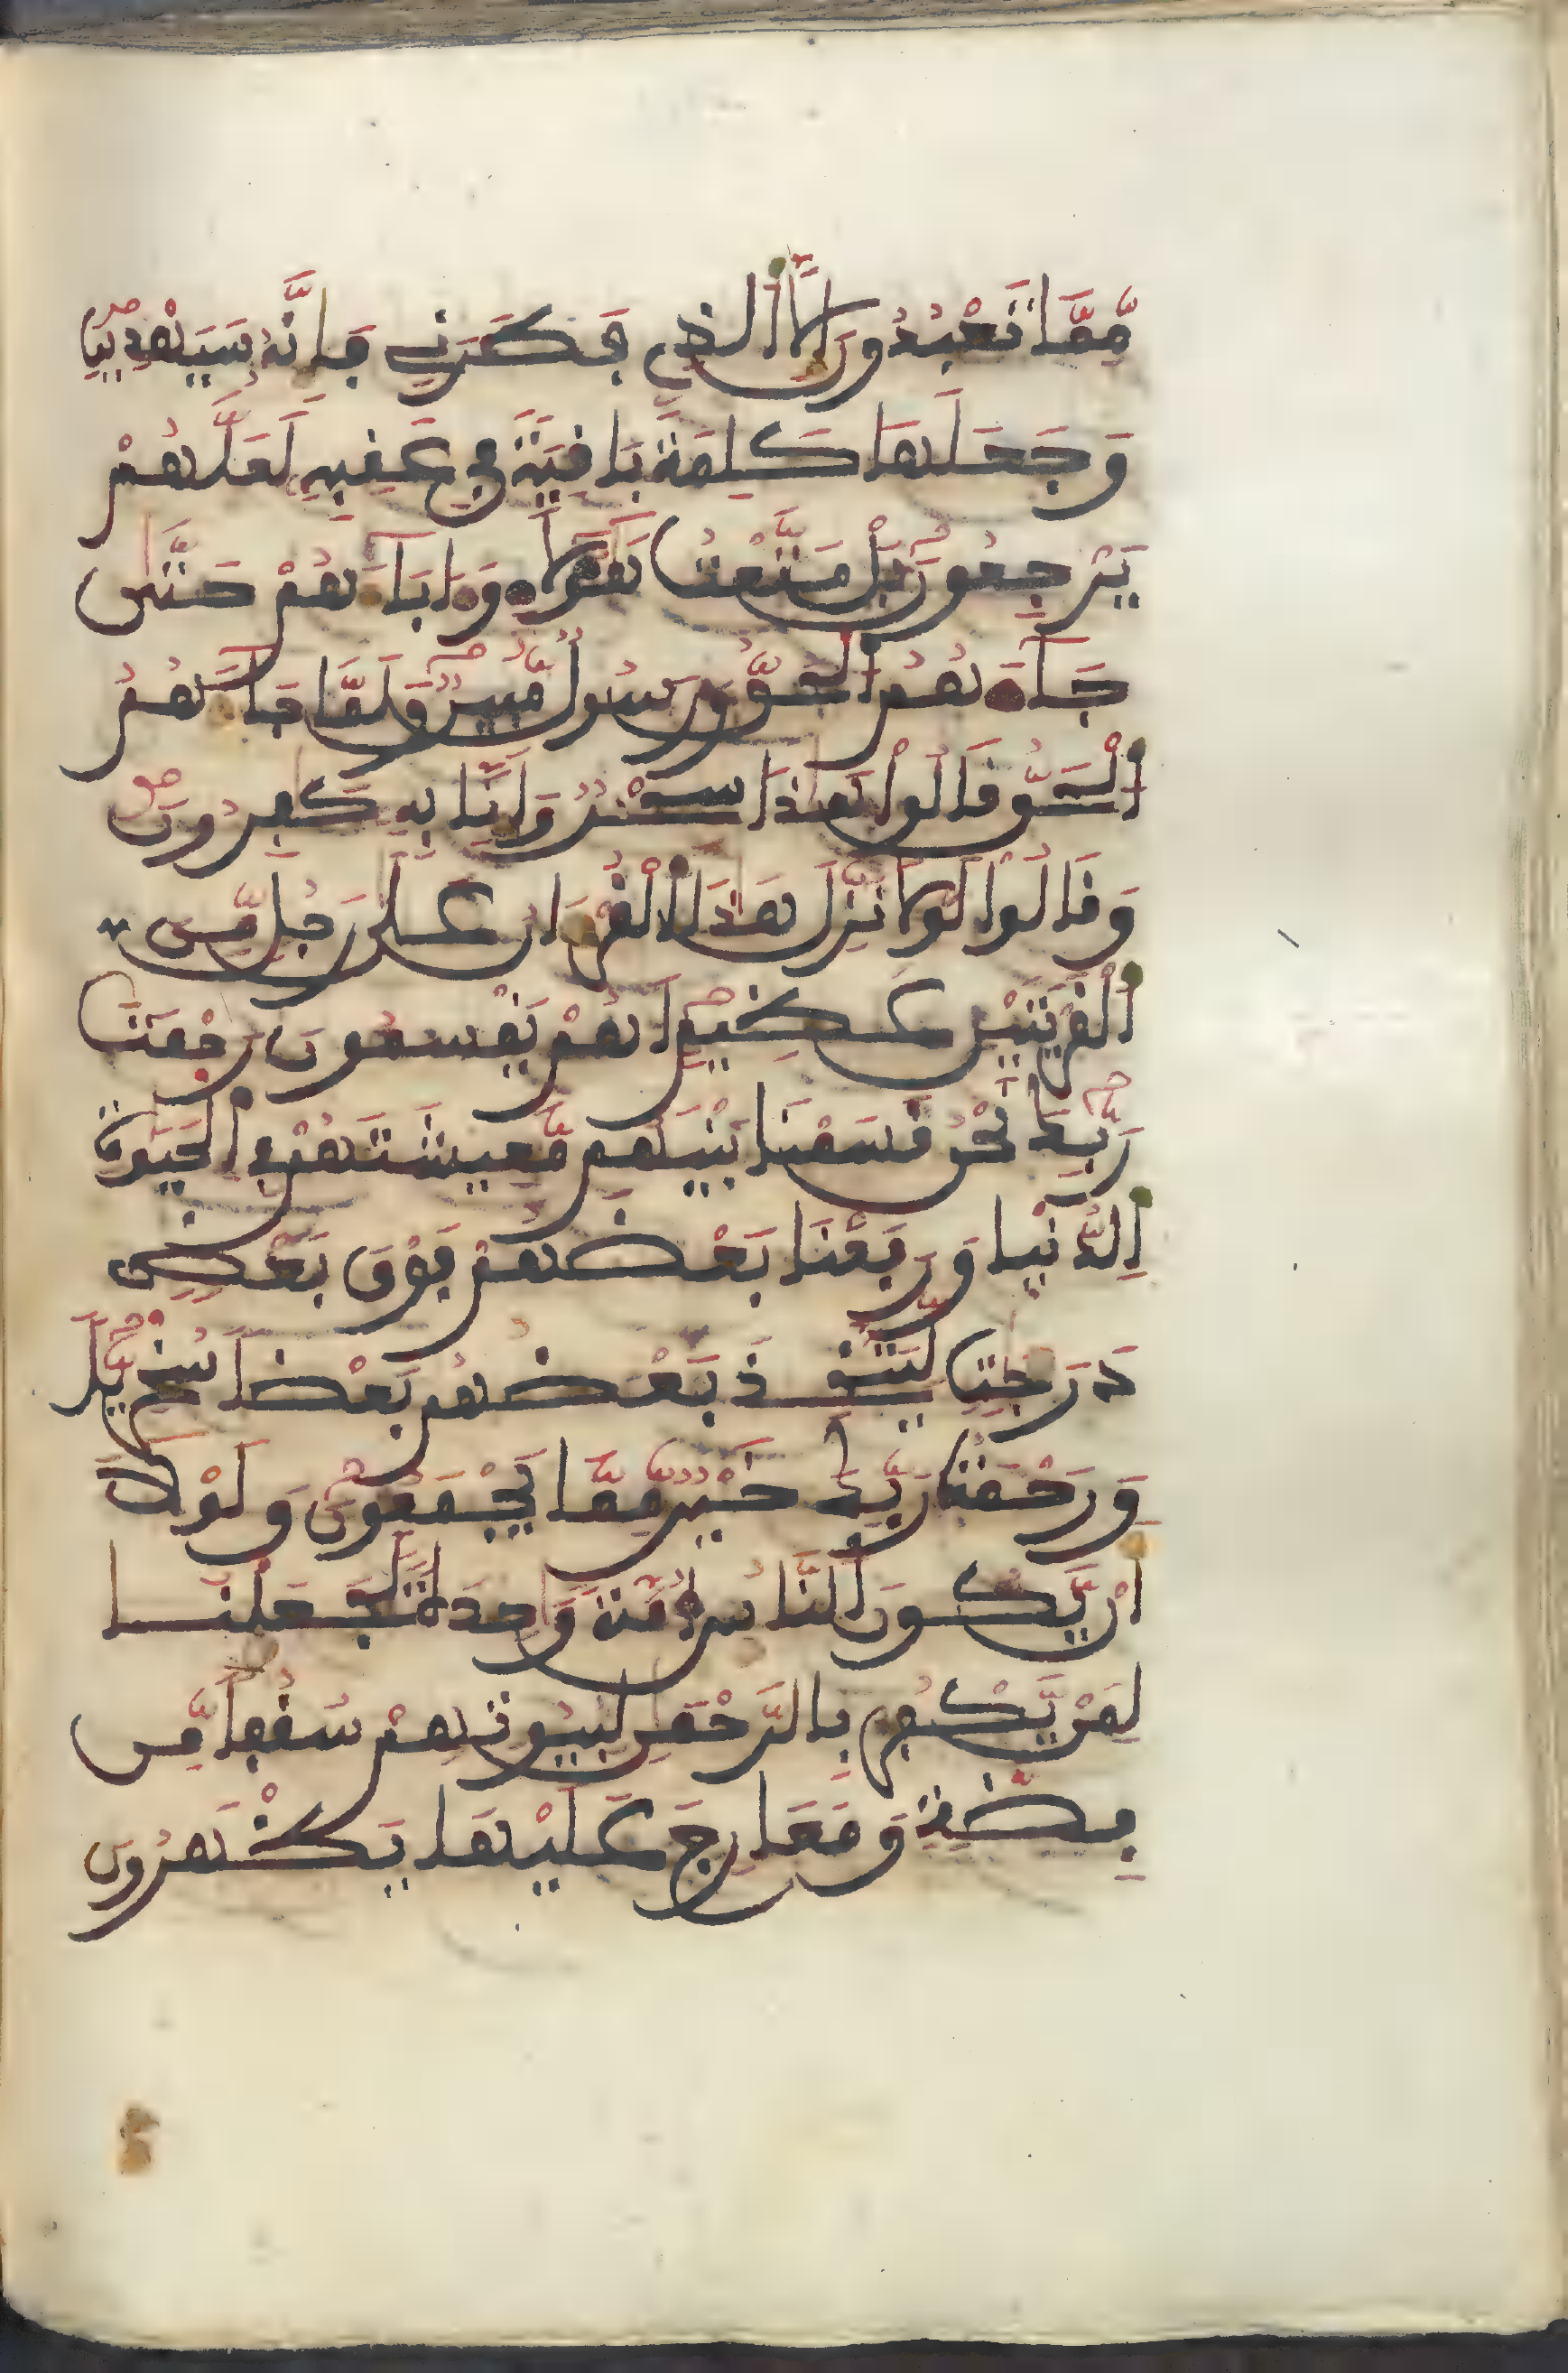 مِّمَّا تَعْبُدُونَ إِلَّا ٱلذِے فَطَرَنِے فَإِنَّهُۥ سَيَهْدِينِ
وَجَعَلَهَا كَلِمَةَۢ بَافِيَةً فِے عَفِبِهِۦ لَعَلَّهُمْ
يَرْجِعُونَ بَلْ مَتَّعْتُ هَٰٓؤُلَآءِ وَءَابَآءَهُمْ حَتَّىٰ
جَآءَهُمُ ٱلْحَقُّ وَرَسُولٌ مُّبِينٌ وَلَمَّا جَآءَهُمُ
ٱلْحَقُّ قَالُوا۟ هَٰذَا سِحْرٌ وَإِنَّا بِهِۦ كَٰفِرُونَ
وَقَالُوا۟ لَوْلَا نُزِّلَ هَٰذَا ٱلْقُرْءَانُ عَلَىٰ رَجُلٍ مِّنَ
ٱلْقَرْيَتَيْنِ عَظِيمٍ أَهُمْ يَقْسِمُونَ رَحْمَتَ
رَبِّكَ نَحْنُ قَسَمْنَا بَيْنَهُم مَّعِيشَتَهُمْ فِے ٱلْحَيَوٰةِ
ٱلدُّنْيَا وَرَفَعْنَا بَعْضَهُمْ فَوْقَ بَعْضٍ
دَرَجَٰتٍ لِّيَتَّخِذَ بَعْضُهُم بَعْضاً سُخْرِيّاً
وَرَحْمَتُ رَبِّكَ خَيْرٌ مِّمَّا يَجْمَعُونَ وَلَوْلَآ
أَنْ يَّكُونَ ٱلنَّاسُ أُمَّةً وَٰحِدَةً لَّجَعَلْنَا
لِمَنْ يَّكْفُرُ بِالرَّحْمَٰنِ لِبُيُوتِهِمْ سُقُفاً مِّن
فِضَّةٍ وَمَعَارِجَ عَلَيْهَا يَظْهَرُونَ